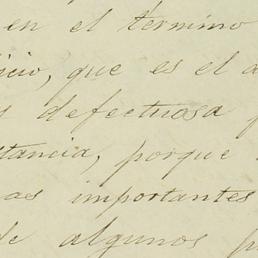 en el término
icio, que es el a
defectuosa
tancia, porque
as importantes
de algunos p